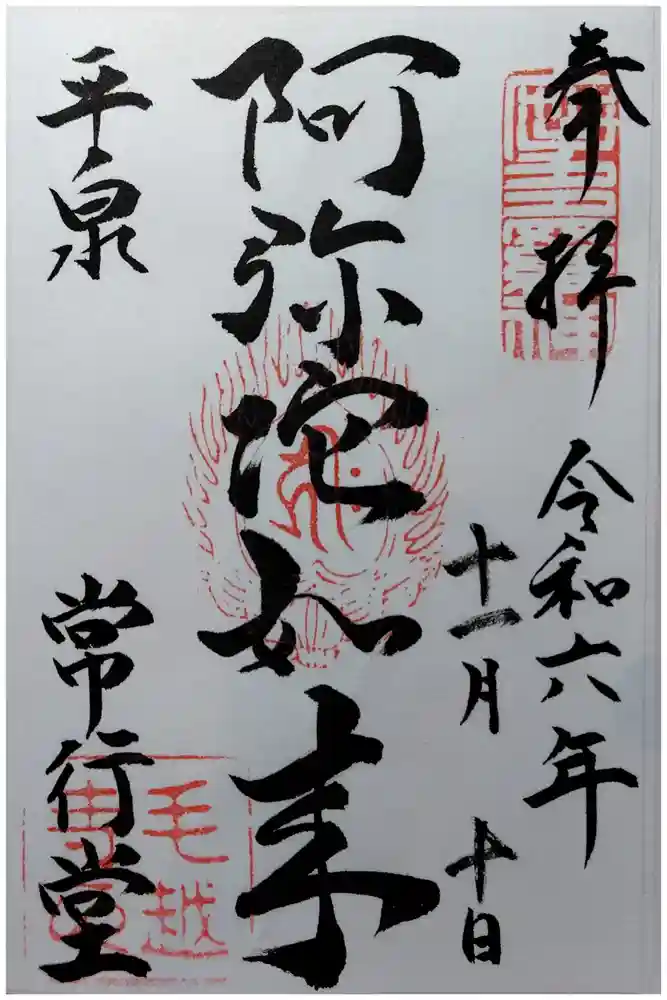 奉拝
令和六年
十一月十日
阿弥陀如来
平泉
常行堂
毛越